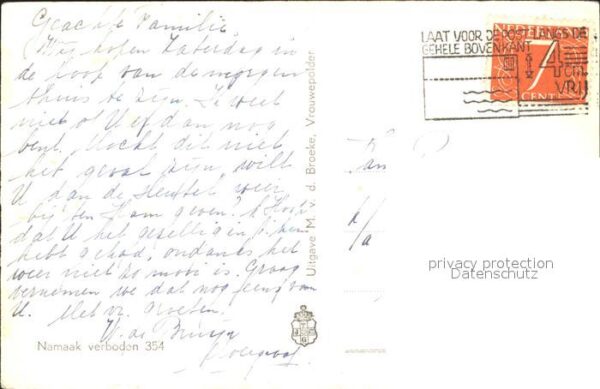 Geachte Familie,
Wij hopen Zaterdag in
de loop van de morgen
thuis te zijn. Ik weet
niet of U er dan nog
bent. Mocht dit niet
het geval zijn, wilt
U dan de sleutel weer
bij ten Ham geven? Ik hoop
dat U het gezellig hier
hebt gehad, ondanks het
weer niet zo mooi is. Graag
vernemen we dat nog eens van
U. Met vr. Groeten.
W. de Bruijn
Namaak verboden 354
Uitgave M. v. d. Broeke, Vrouwepolder
LAAT VOOR DE POST LANGS DE
GEHELE BOVENKANT
4 cm
VRIJ
NEDERLAND
7
CENT
privacy protection
Datenschutz